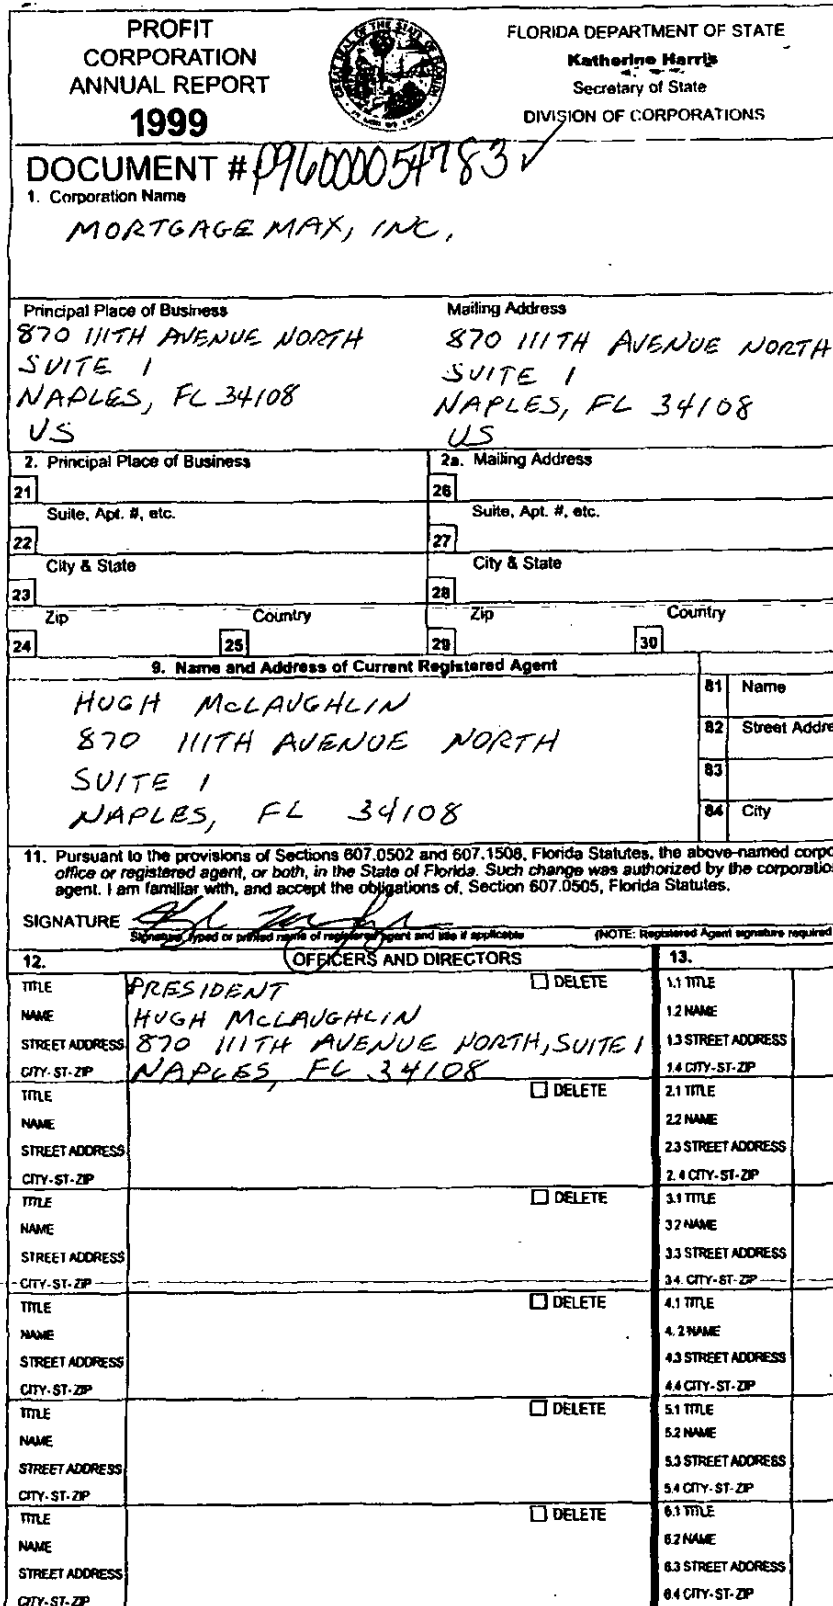 PROFIT
CORPORATION
ANNUAL REPORT
1999
FLORIDA DEPARTMENT OF STATE
Katherine Harris
Secretary of State
DIVISION OF CORPORATIONS
DOCUMENT # P96000054783
1. Corporation Name
MORTGAGE MAX, INC.
Principal Place of Business
870 111TH AVENUE NORTH
SUITE 1
NAPLES, FL 34108
US
Mailing Address
870 111TH AVENUE NORTH
SUITE 1
NAPLES, FL 34108
US
2. Principal Place of Business
2a. Mailing Address
21
26
Suite, Apt. #, etc.
Suite, Apt. #, etc.
22
27
City & State
City & State
23
28
Zip Country
Zip Country
24 25
29 30
9. Name and Address of Current Registered Agent
HUGH McLAUGHLIN
870 111TH AVENUE NORTH
SUITE 1
NAPLES, FL 34108
81 Name
82 Street Addre
83
84 City
11. Pursuant to the provisions of Sections 607.0502 and 607.1508, Florida Statutes, the above-named corpo
office or registered agent, or both, in the State of Florida. Such change was authorized by the corporatio
agent. I am familiar with, and accept the obligations of, Section 607.0505, Florida Statutes.
SIGNATURE
Signature, typed or printed name of registered agent and title if applicable (NOTE: Registered Agent signature required
12. OFFICERS AND DIRECTORS 13.
TITLE PRESIDENT DELETE
NAME HUGH McLAUGHLIN
STREET ADDRESS 870 111TH AVENUE NORTH, SUITE 1
CITY-ST-ZIP NAPLES, FL 34108
1.1 TITLE
1.2 NAME
1.3 STREET ADDRESS
1.4 CITY-ST-ZIP
TITLE DELETE
NAME
STREET ADDRESS
CITY-ST-ZIP
2.1 TITLE
2.2 NAME
2.3 STREET ADDRESS
2.4 CITY-ST-ZIP
TITLE DELETE
NAME
STREET ADDRESS
CITY-ST-ZIP
3.1 TITLE
3.2 NAME
3.3 STREET ADDRESS
3.4. CITY-ST-ZIP
TITLE DELETE
NAME
STREET ADDRESS
CITY-ST-ZIP
4.1 TITLE
4.2 NAME
4.3 STREET ADDRESS
4.4 CITY-ST-ZIP
TITLE DELETE
NAME
STREET ADDRESS
CITY-ST-ZIP
5.1 TITLE
5.2 NAME
5.3 STREET ADDRESS
5.4 CITY-ST-ZIP
TITLE DELETE
NAME
STREET ADDRESS
CITY-ST-ZIP
6.1 TITLE
6.2 NAME
6.3 STREET ADDRESS
6.4 CITY-ST-ZIP